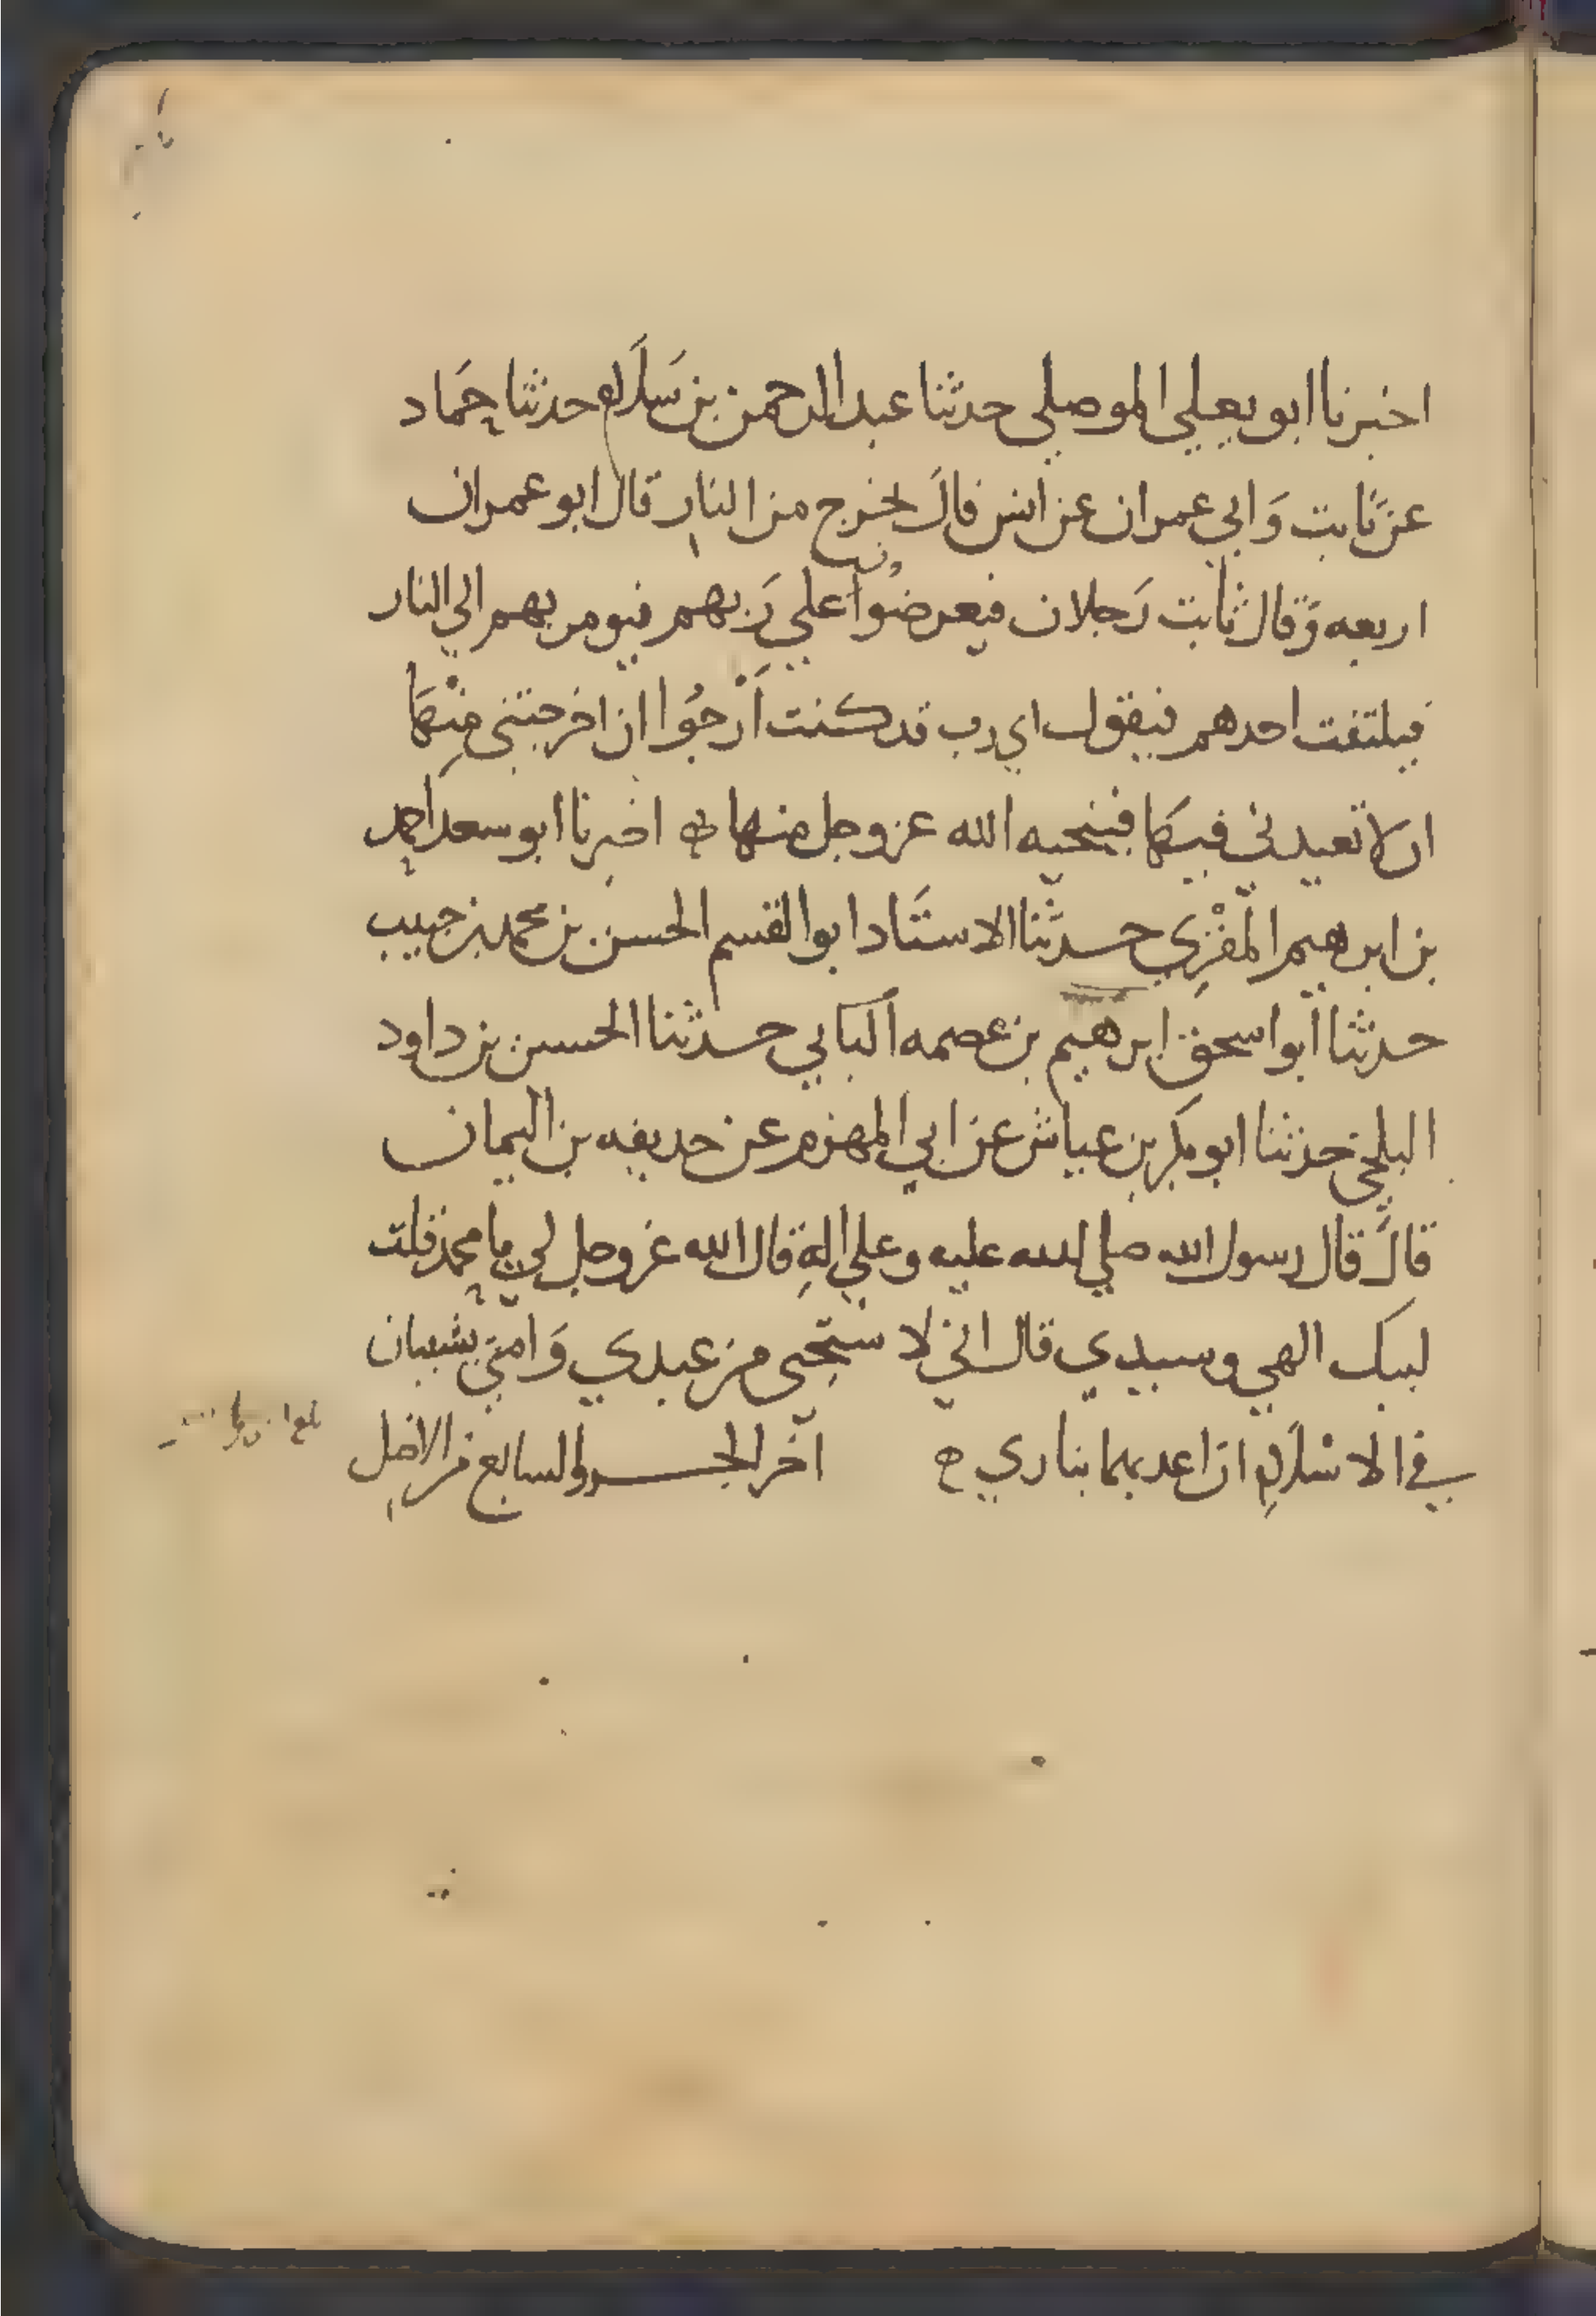 اخبرنا ابو يعلي الموصلي حدثنا عبد الرحمن بن سَلَام حدثنا حَمَاد
عن ثابت وَابي عمران عن انس قال يخرج من النار قال ابو عمران
اربعه وَقال ثابت رَجلان فيعرضُوا علي رَبهم فيومر بهم الي النار
فيلتفت احدهم فيقول اي رب قد كنت اَرْجُوا ان اخرجتني مِنْهَا
ان لا تعيدني فيهَا فينجيه الله عز وجل منها ه اخبرنا ابو سعد احمد
بن ابرهيم المقْرِي حدثنا الاستَاد ابو القسم الحسن بن محمد بن حبيب
حدثنا ابو اسحق ابرهيم بن عصمه البابي حدثنا الحسن بن داود
البلخي حدثنا ابو بكر بن عياش عن ابي المهزم عن حديفه بن اليمان
قالَ قال رسول الله صلي الله عليه وعلي الهِ قال الله عز وجل لي يا محمد قلت
لبيك الهي وسيدي قال اني لا ستحيى من عبدي وَامتي يشيبان
في الاسْلَامِ ان اعدبهما بناري ح اخر الجزو السابع من الاصل
بلغ